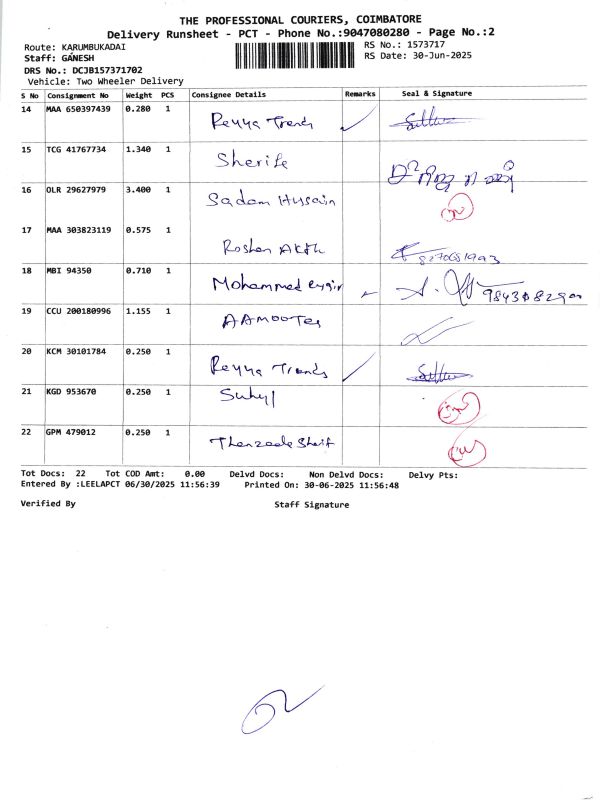 THE PROFESSIONAL COURIERS, COIMBATORE
Delivery Runsheet - PCT - Phone No.:9047080280 - Page No.:2
Route: KARUMBUKADAI RS No.: 1573717
Staff: GANESH RS Date: 30-Jun-2025
DRS No.: DCJB157371702
Vehicle: Two Wheeler Delivery
S No Consignment No Weight PCS Consignee Details Remarks Seal & Signature
14 MAA 650397439 0.280 1
Reyya Trends
15 TCG 41767734 1.340 1
Sherife
16 OLR 29627979 3.400 1
Sadam Hussain
17 MAA 303823119 0.575 1
Roshan
18 MBI 94350 0.710 1
Mohammed
19 CCU 200180996 1.155 1
20 KCM 30101784 0.250 1
Reyya Trends
21 KGD 953670 0.250 1
Suhyl
22 GPM 479012 0.250 1
Tot Docs: 22 Tot COD Amt: 0.00 Delvd Docs: Non Delvd Docs: Delvy Pts:
Entered By :LEELAPCT 06/30/2025 11:56:39 Printed On: 30-06-2025 11:56:48
Verified By Staff Signature